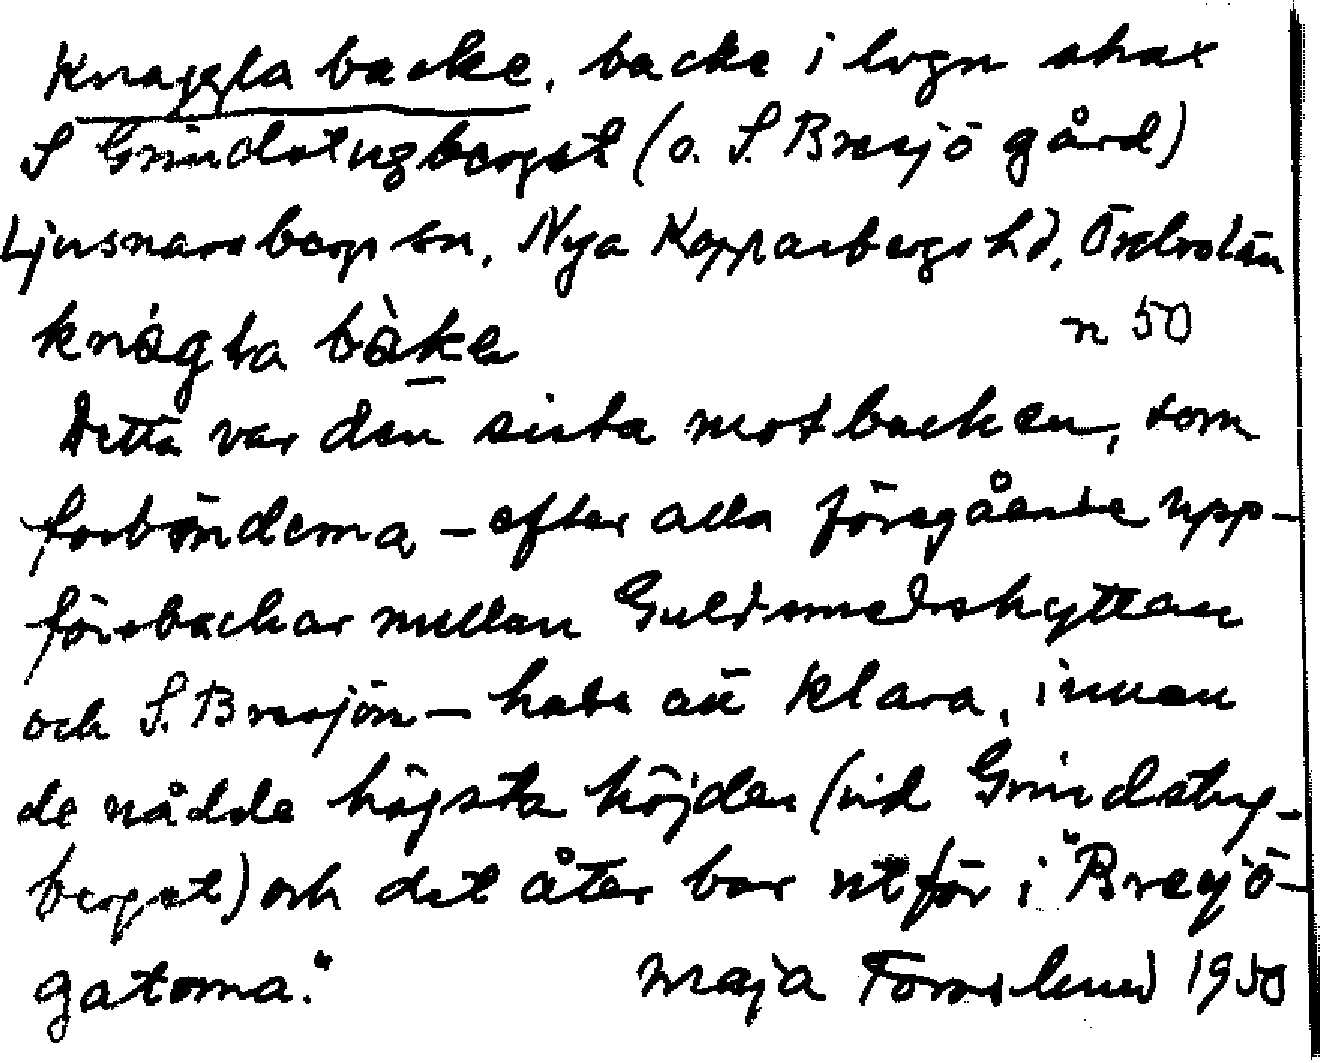 Knaggla backe, backe i lvgn strax
S Grindstugberget (o. S. Bresjö gård)
Ljusnarsbergs sn, Nya Kopparbergs hd, Örebro län
n 50
Detta var den sista motbacken, som
forbönderna – efter alla föregående upp-
försbackar mellan Guldsmedshyttan
och S. Bresjön – hade att klara, innan
de nådde högsta höjden (vid Grindstug-
berget) och det åter bar utför i "Bresjö-
gatorna."
Maja Forsslund 1950